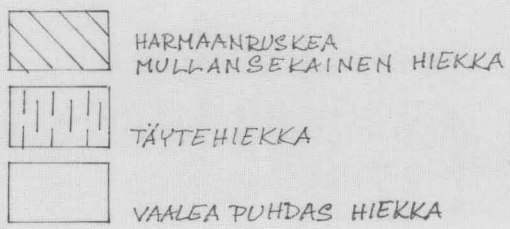 HARMAANRUSKEA
MULLANSEKAINEN HIEKKA
TÄYTEHIEKKA
VAALEA PUHDAS HIEKKA